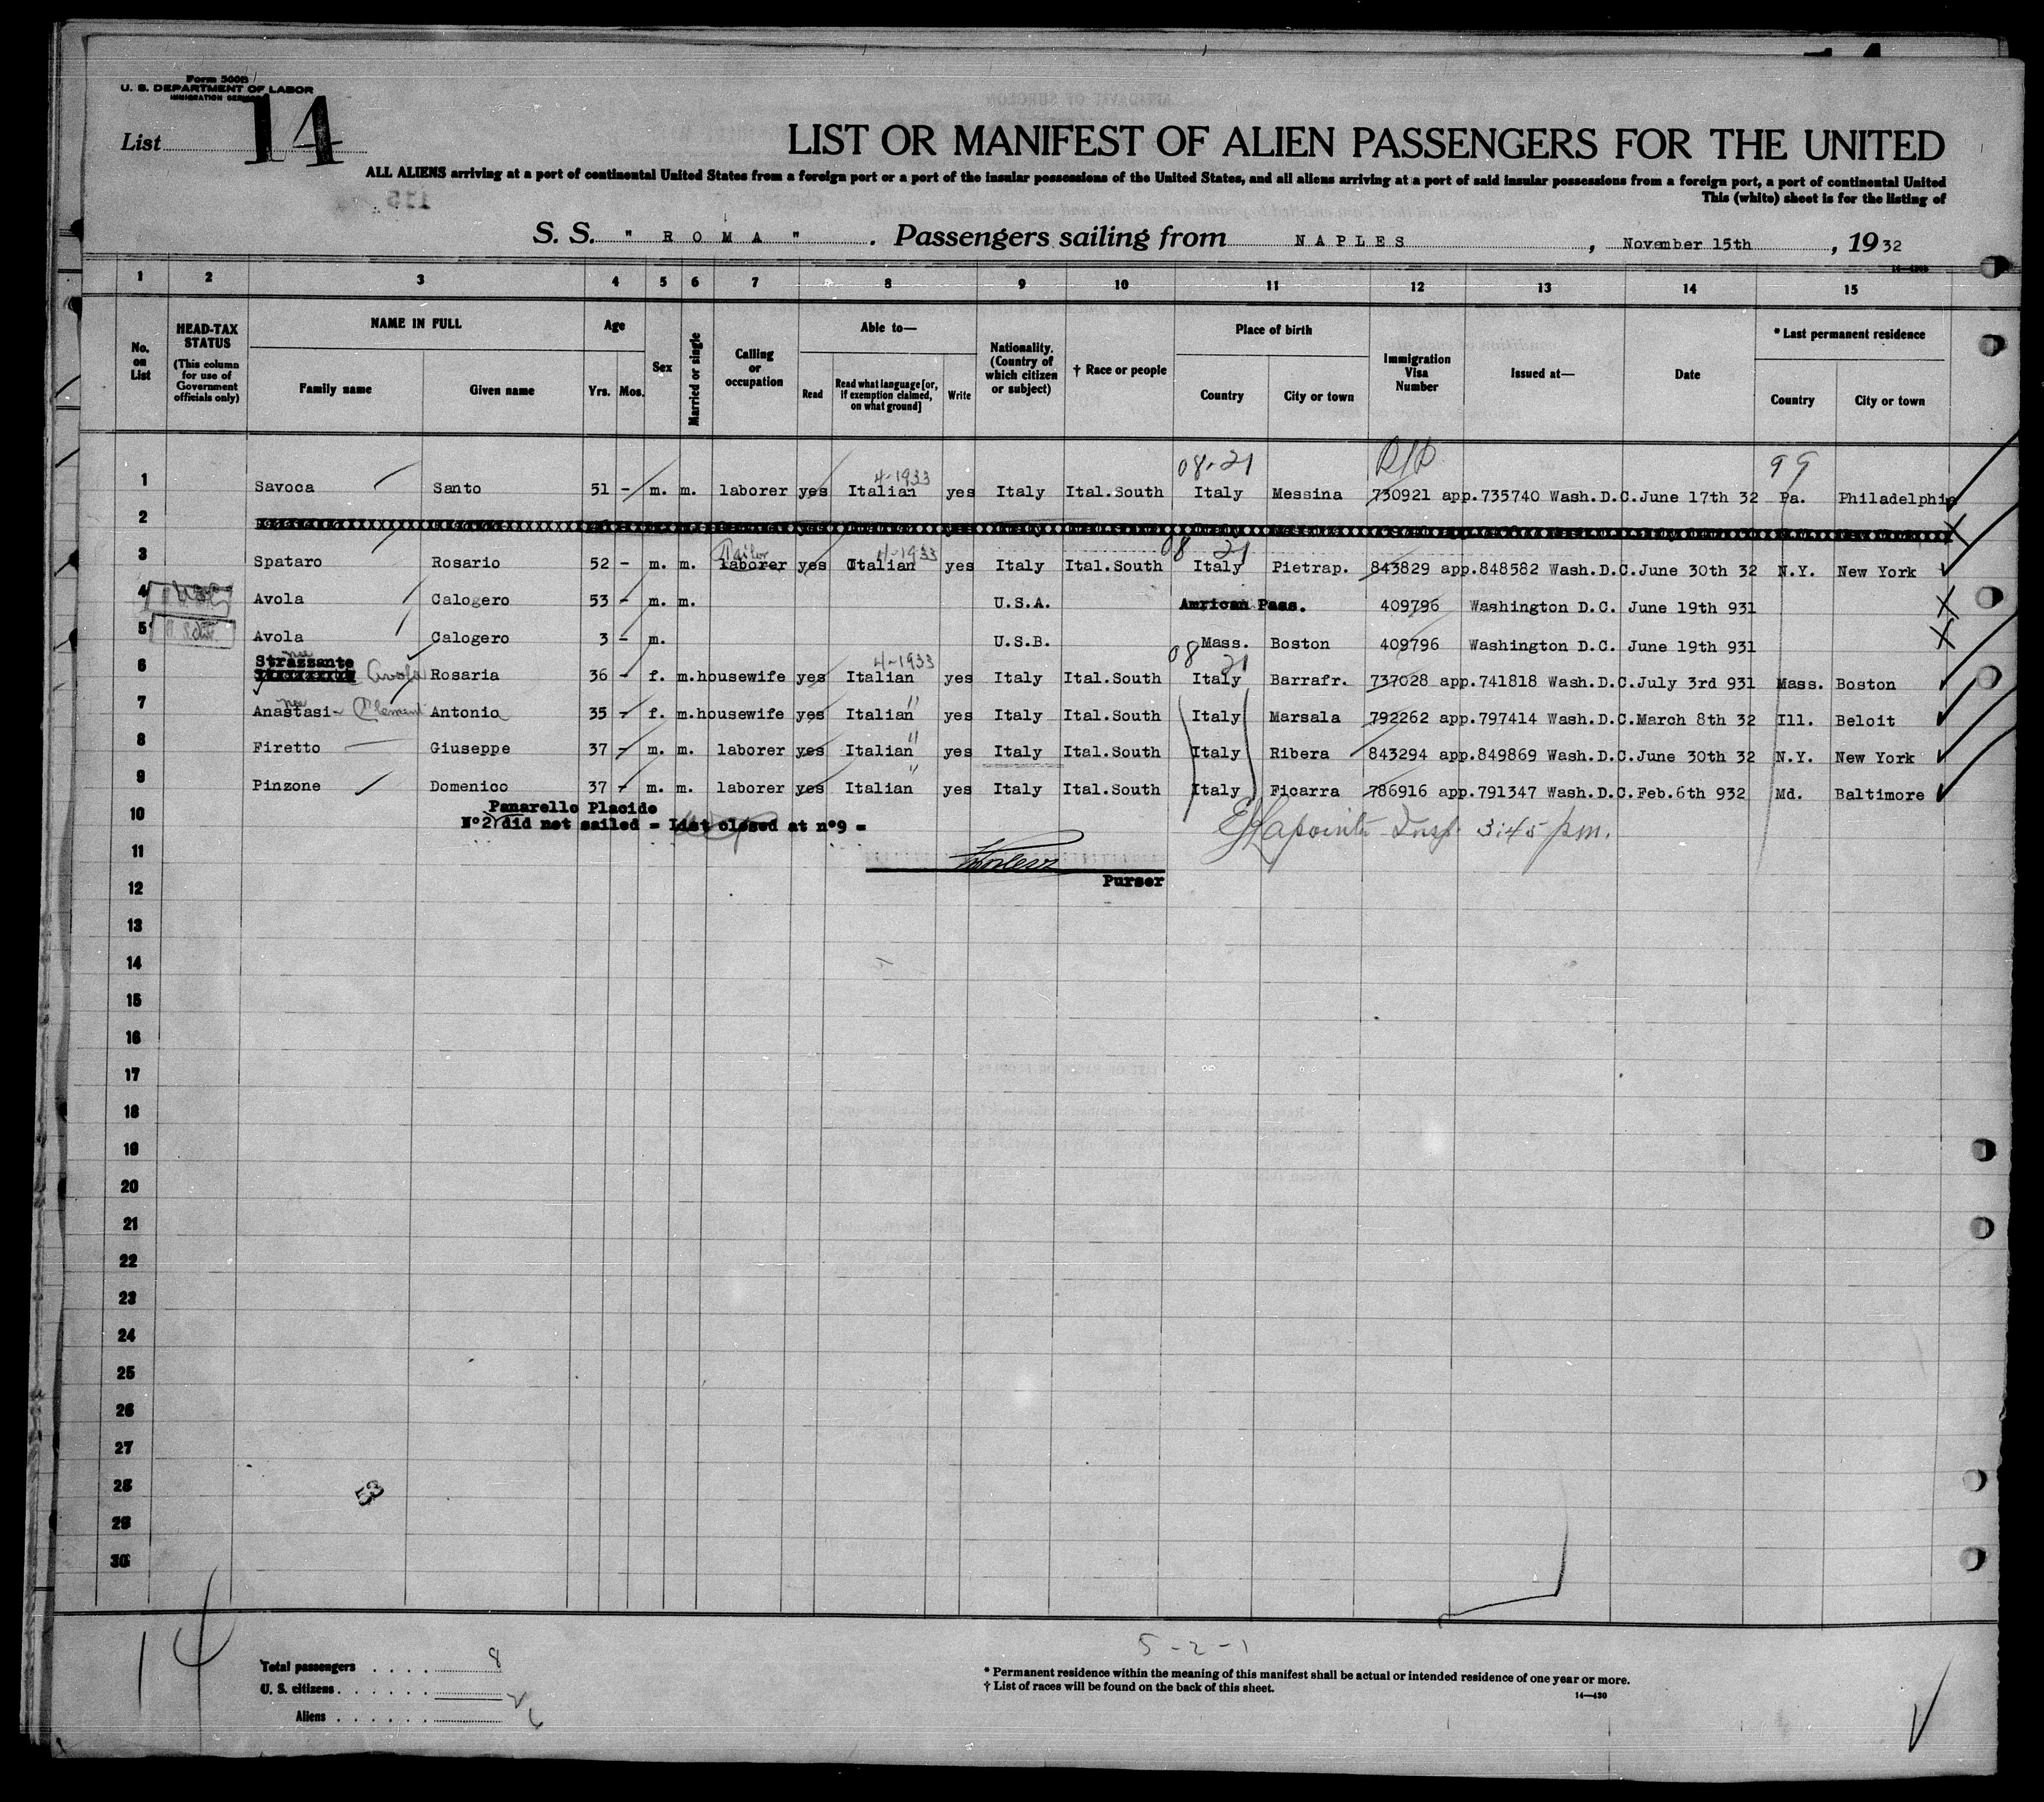 Form 500B
U. S. DEPARTMENT OF LABOR
IMMIGRATION SERVICE
List 14
LIST OR MANIFEST OF ALIEN PASSENGERS FOR THE UNITED
ALL ALIENS arriving at a port of continental United States from a foreign port or a port of the insular possessions of the United States, and all aliens arriving at a port of said insular possessions from a foreign port, a port of continental United
This (white) sheet is for the listing of
S. S. " R O M A " . Passengers sailing from N A P L E S , November 15th , 19 32
1 2 3 4 5 6 7 8 9 10 11 12 13 14 15
No. on List
HEAD-TAX STATUS (This column for use of Government officials only)
NAME IN FULL Family name Given name
Age Yrs. Mos.
Sex
Married or single
Calling or occupation
Able to— Read Read what language [or, if exemption claimed, on what ground] Write
Nationality. (Country of which citizen or subject)
† Race or people
Place of birth Country City or town
Immigration Visa Number
Issued at—
Date
* Last permanent residence Country City or town
08-21 99
4-1933
1 Savoca Santo 51 - m. m. laborer yes Italian yes Italy Ital.South Italy Messina 730921 app.735740 Wash.D.C.June 17th 32 Pa. Philadelphia
2
Tailor 4-1933 08 21
3 Spataro Rosario 52 - m. m. laborer yes Italian yes Italy Ital.South Italy Pietrap. 843829 app.848582 Wash.D.C.June 30th 32 N.Y. New York
4 Avola Calogero 53 - m. m. U.S.A. Amrican Pass. 409796 Washington D.C. June 19th 931
5 Avola Calogero 3 - m. U.S.B. Mass. Boston 409796 Washington D.C. June 19th 931
Strazzante nee 4-1933 08 21
6 Avola Rosaria 36 - f. m. housewife yes Italian yes Italy Ital.South Italy Barrafr. 737028 app.741818 Wash.D.C.July 3rd 931 Mass. Boston
nee "
7 Anastasi- Clement Antonia 35 - f. m. housewife yes Italian yes Italy Ital.South Italy Marsala 792262 app.797414 Wash.D.C.March 8th 32 Ill. Beloit
"
8 Firetto Giuseppe 37 - m. m. laborer yes Italian yes Italy Ital.South Italy Ribera 843294 app.849869 Wash.D.C.June 30th 32 N.Y. New York
"
9 Pinzone Domenico 37 - m. m. laborer yes Italian yes Italy Ital.South Italy Ficarra 786916 app.791347 Wash.D.C.Feb.6th 932 Md. Baltimore
Panarello Placido
10 N°2 did not sailed = List closed at n°9 = Lapointe Insp. 3:45 p.m.
11
Purser
12
13
14
15
16
17
18
19
20
21
22
23
24
25
26
27
28
53
29
30
14
5-2-1
Total passengers . . . . 8
U. S. citizens . . . . . . 2
Aliens . . . . . . 6
* Permanent residence within the meaning of this manifest shall be actual or intended residence of one year or more.
† List of races will be found on the back of this sheet.
14—430